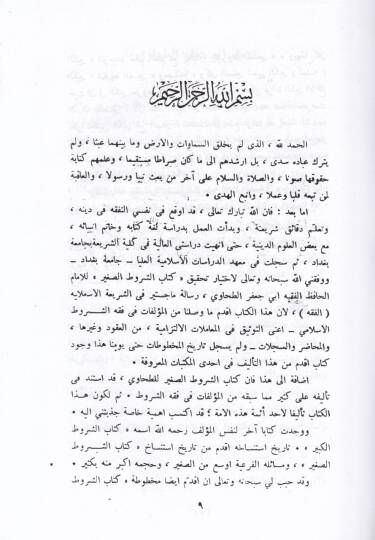 بسم الله الرحمن الرحيم
الحمد لله ، الذى لم يخلق السماوات والارض وما بينهما عبثا ، ولم
يترك عباده سدى ، بل ارشدهم الى ما كان صراطا مستقيما ، وعلمهم كتابة
حقوقها صونا ، والصلاة والسلام على آخر من بعث نبيا ورسولا ، والعاقبة
لمن تبعه قلبا وعملا ، واتبع الهدى .
اما بعد : فان الله تبارك تعالى ، قد اوقع في نفسي التفقه في دينه ،
وتعلم دقائق شريعته ، وبدأت العمل بدراسة لغة كتابه وخاتم انبيائه ،
مع بعض العلوم الدينية ، حتى انهيت دراستي العالية في كلية الشريعة بجامعة
بغداد ، ثم سجلت في معهد الدراسات الاسلامية العليا ــ جامعة بغداد ــ
ووفقني الله سبحانه وتعالى لاختيار تحقيق « كتاب الشروط الصغير » للامام
الحافظ الفقيه ابي جعفر الطحاوي ، رسالة ماجستير في الشريعة الاسلامية
( الفقه ) ، لان هذا الكتاب اقدم ما وصلنا من المؤلفات في فقه الشروط
الاسلامي ــ اعنى التوثيق في المعاملات الالتزامية ، من العقود وغيرها ،
والمحاضر والسجلات ــ ولم يسجل تاريخ المخطوطات حتى يومنا هذا وجود
كتاب اقدم من هذا التأليف في احدى المكتبات المعروفة .
اضافة الى هذا فان كتاب الشروط الصغير للطحاوي ، قد استند في
تأليفه على كثير مما سبقه من المؤلفات في فقه الشروط . ثم لكون هذا
الكتاب تأليفا لاحد أئمة هذه الامة ؛ قد اكتسب اهمية خاصة جذبتني اليه .
ووجدت كتابا آخر لنفس المؤلف رحمه الله اسمه « كتاب الشروط
الكبير » . تاريخ استنساخه اقدم من تاريخ استنساخ « كتاب الشروط
الصغير » ، ومسائله الفرعية اوسع من الصغير ، وحجمه اكبر منه بكثير .
وقد حبب لي سبحانه وتعالى ان اقدم ايضا مخطوطة « كتاب الشروط
٩